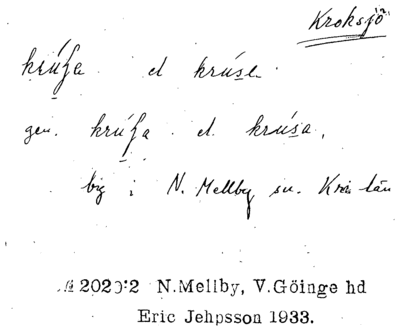 Kroksjö
krúʃa el krúse
gen. krúʃa el. krúsa,
by i N. Mellby sn. Kris län
2020:2 N.Mellby, V.Göinge hd
Eric Jehpsson 1933.